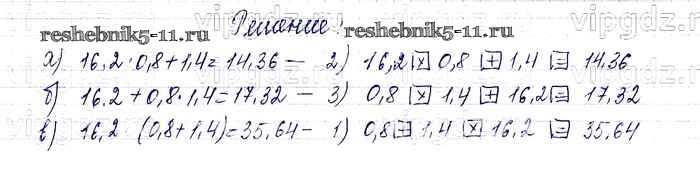 Решение:
reshebnik5-11.ru reshebnik5-11.ru
а) 16,2 · 0,8 + 1,4 = 14,36 — 2) 16,2 × 0,8 + 1,4 = 14,36
б) 16,2 + 0,8 · 1,4 = 17,32 — 3) 0,8 × 1,4 + 16,2 = 17,32
в) 16,2 (0,8 + 1,4) = 35,64 — 1) 0,8 + 1,4 × 16,2 = 35,64